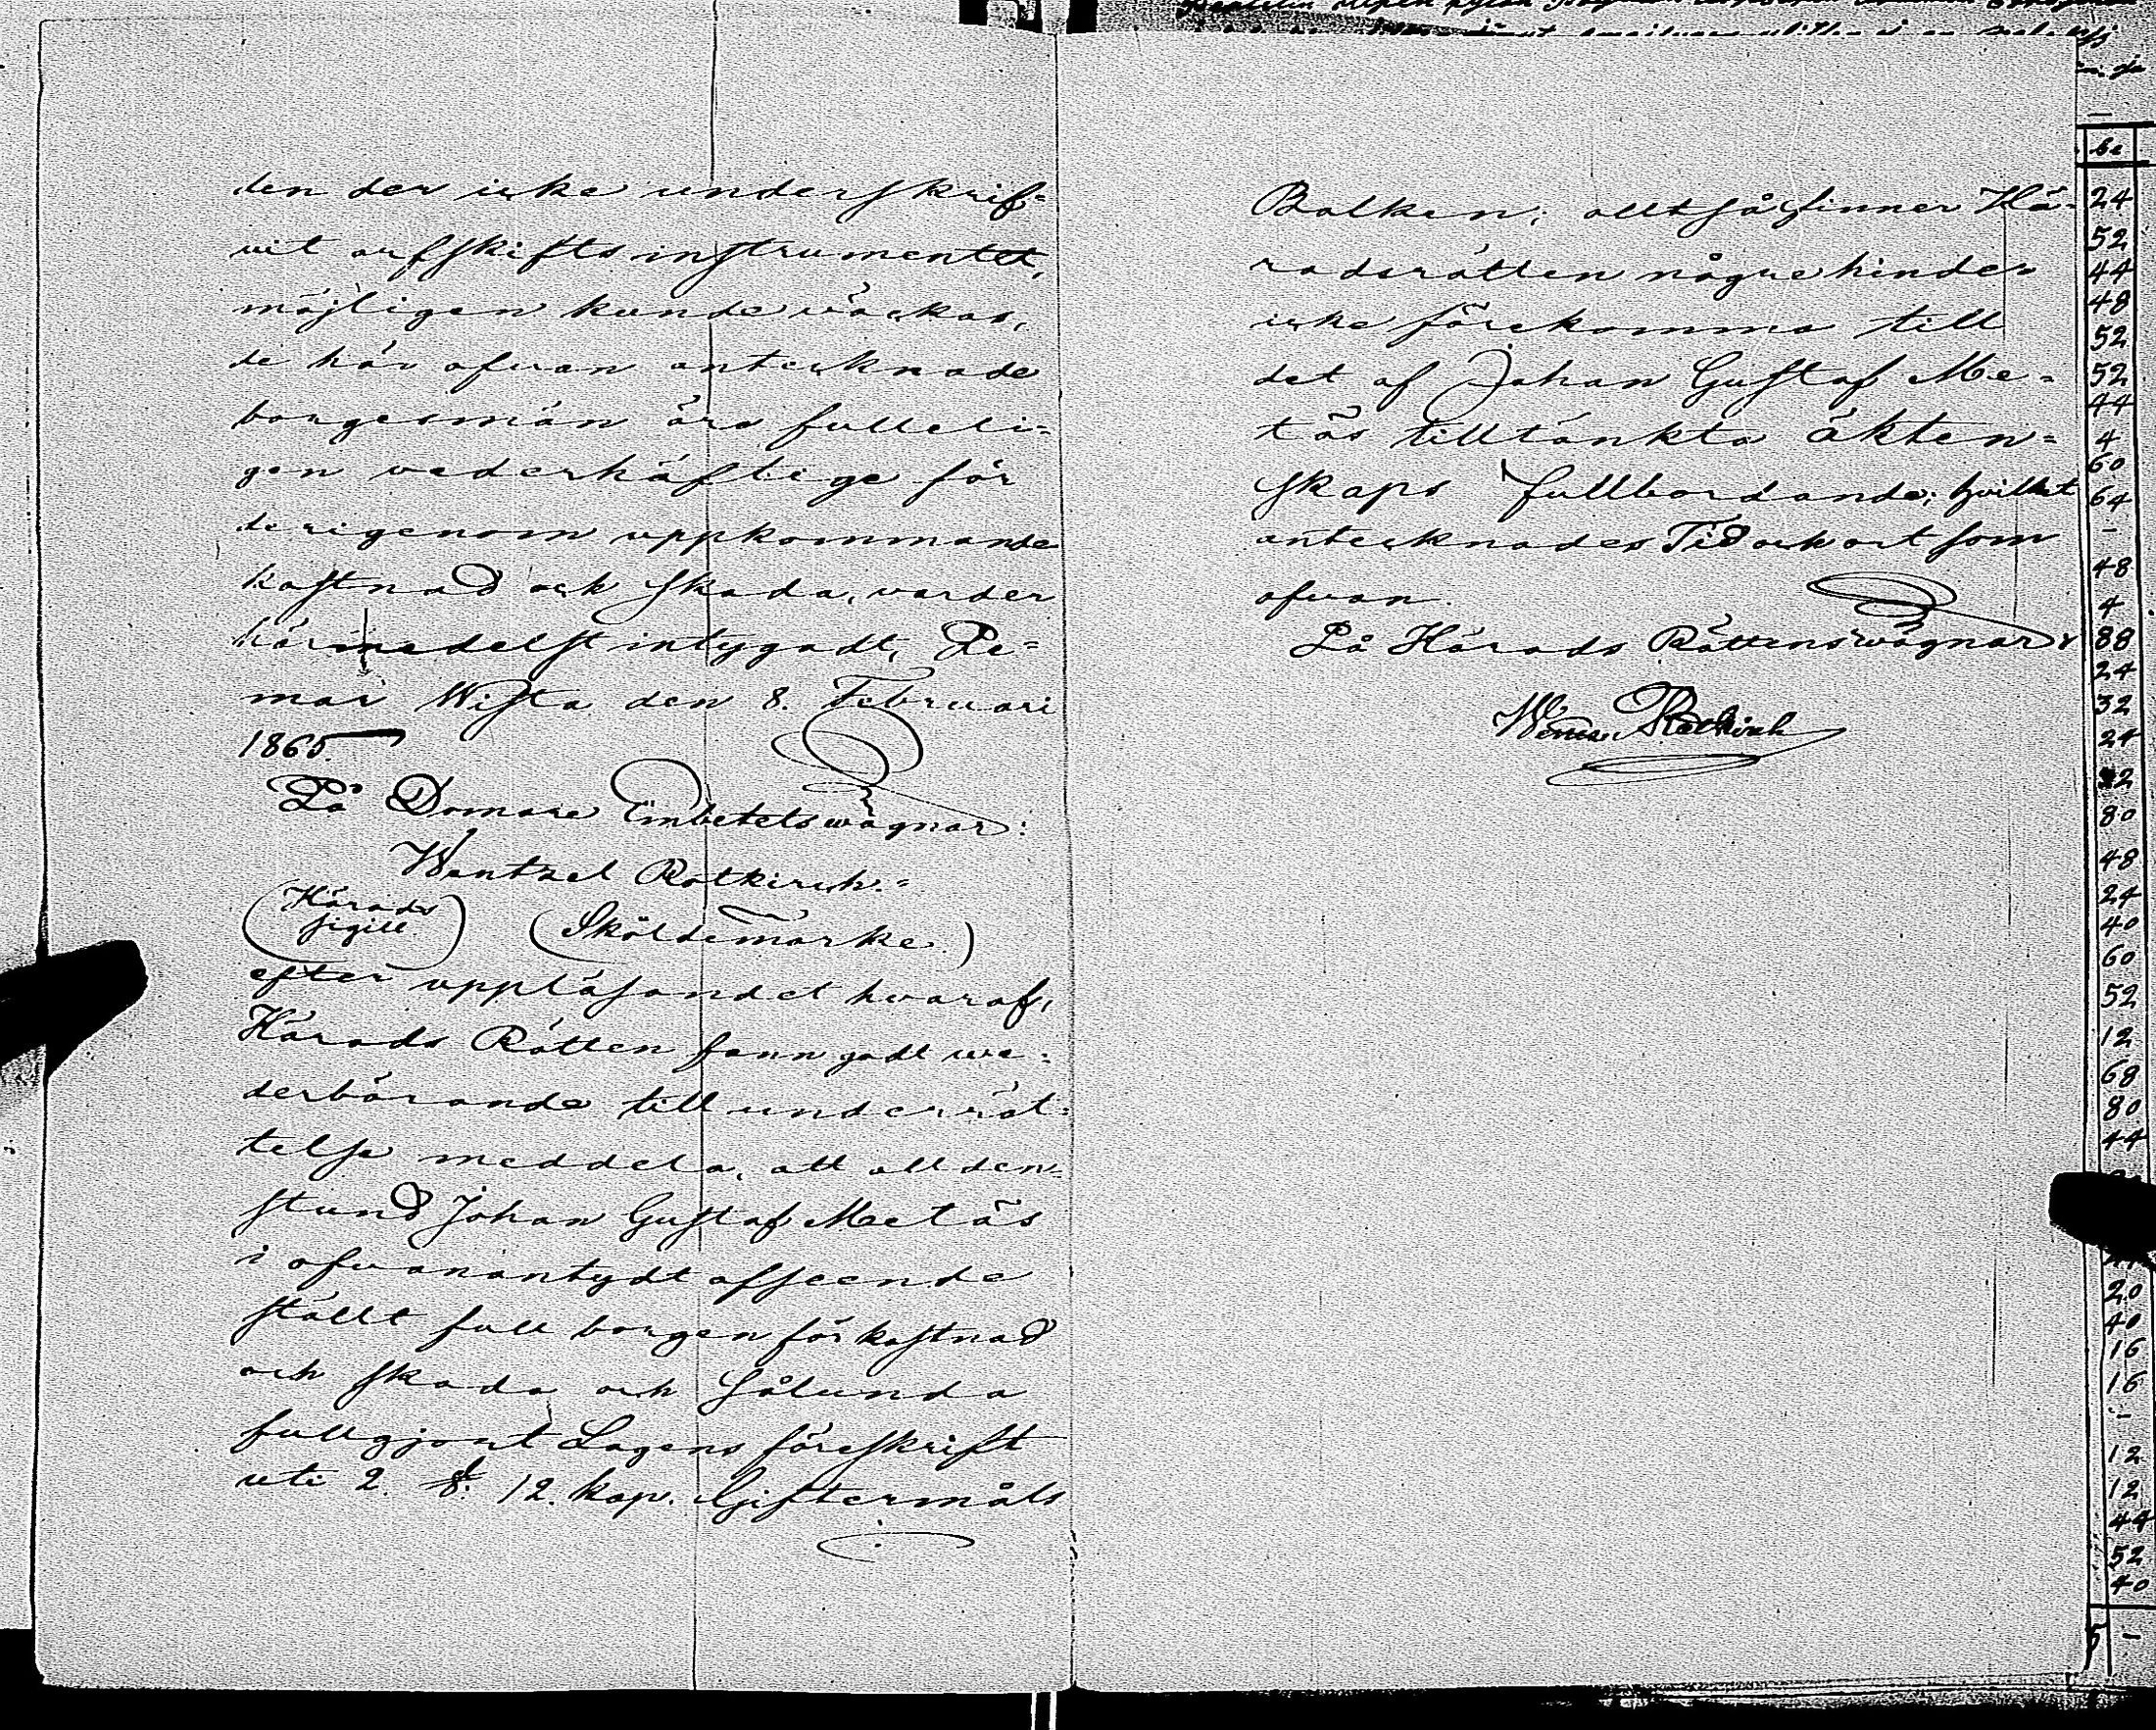 den der icke underskrif=
vit arfskiftsinstrumentet,
möjligen kunde väckas,
de här ofvan antecknade
borgesmän äro fulleli=
gen vederhäftige för
derigenom uppkommande
kostnad och skada, varder
härmedelst intygadt, Pe=
mar Wista den 8. Februari
1865.
På Domare Embetets wägnar:
Wentzel Rotkirch.=
(Härads
sigill) (Sköldemärke)
efter uppläsandet hvaraf,
Härads Rätten fann godt we=
derbörande till underrät=
telse meddela, att allden=
stund Johan Gustaf Metäs
i ofvanantydt afseende
ställt full borgen för kostnad
och skada och sålunda
fullgjort Lagens föreskrift
uti 2. §. 12. kap. Giftermåls
Balken; alltså finner Hä=
radsrätten någre hinder
icke förekomma till
det af Johan Gustaf Me=
täs tilltänkta äkten=
skaps fullbordande; hvilket
antecknades Tid och ort som
ofvan.
På Härads Rättens wägnar:
Rotkirch
24
52
44
48
52
52
44
4
60
64
-
48
4
88
24
32
24
80
48
24
40
60
52
12
68
80
44
20
40
16
16
-
12
12
44
52
40
5 -